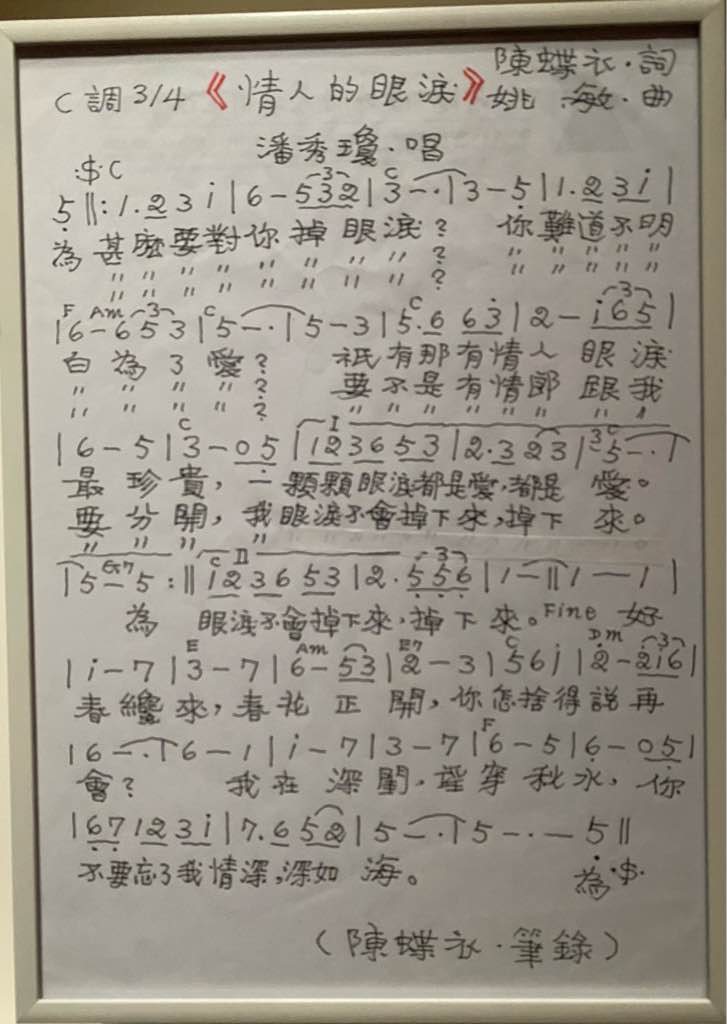 C調3/4《情人的眼淚》陳蝶衣·詞
姚敏·曲
潘秀瓊·唱
·$· C 3 C
5 ‖: 1. 2 3 i | 6 – 5 3 2 | 3 – · | 3 – 5 | 1. 2 3 i |
為甚麼要對你掉眼淚? 你難道不明
〃 〃 〃 〃 〃 〃 〃 〃 ? 〃 〃 〃 〃 〃
〃 〃 〃 〃 〃 〃 〃 〃 ? 〃 〃 〃 〃 〃
F Am 3 C C 3
| 6 – 6 5 3 | 5 – · | 5 – 3 | 5. 6 6 3 | 2 – i 6 5 |
白為了愛? 祇有那有情人眼淚
〃 〃 〃 〃 ? 要不是有情郎跟我
〃 〃 〃 〃 ? 〃 〃 〃 〃 〃 〃 〃 〃
C I 3 C
| 6 – 5 | 3 – 0 5 | 1 2 3 6 5 3 | 2. 3 2 3 | 5 – · |
最珍貴,一顆顆眼淚都是愛,都是愛。
要分開,我眼淚不會掉下來,掉下來。
〃 〃 〃 〃
Em7 C II 3
| 5 – 5 :‖ i 2 3 6 5 3 | 2. 5 5 6 | 1 – ‖ 1 — 1 |
為 眼淚不會掉下來,掉下來。Fine 好
E Am E7 C Dm 3
| i – 7 | 3 – 7 | 6 – 5 3 | 2 – 3 | 5 6 i | 2 – 2 i 6 |
春纔來,春花正開,你怎捨得說再
F
| 6 – · | 6 – 1 | i – 7 | 3 – 7 | 6 – 5 | 6 – 0 5 |
會? 我在深閨,望穿秋水,你
| 6 7 1 2 3 i | 7. 6 5 2 | 5 – · | 5 – · – 5 ‖
不要忘了我情深,深如海。 為 ·$·
(陳蝶衣·筆錄)